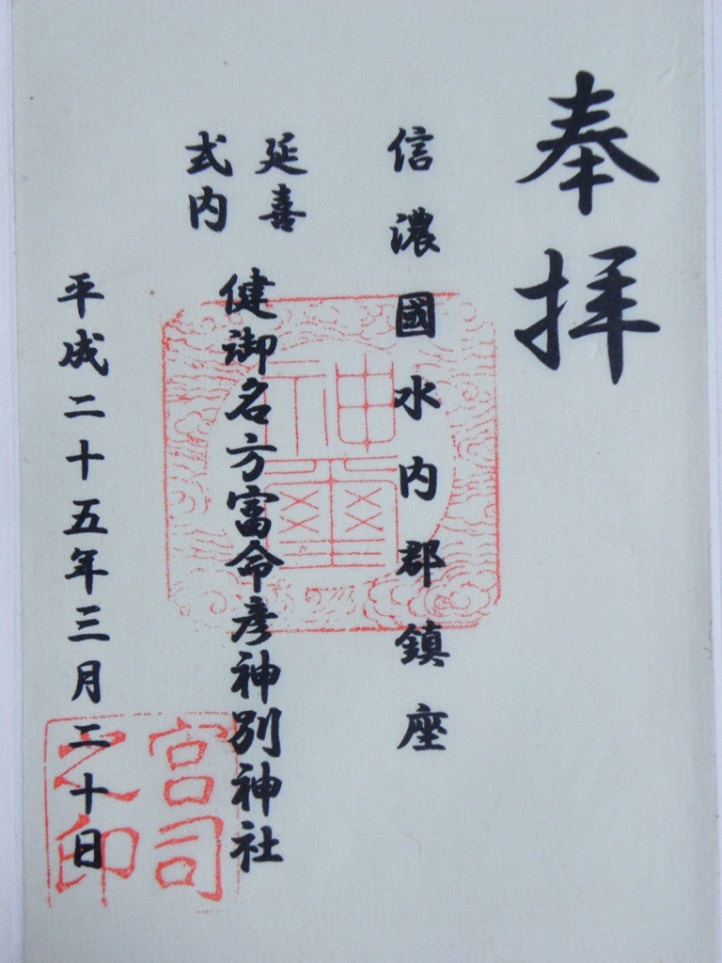 奉拝
信濃國水内郡鎮座
延喜
式内
健御名方富命彦神別神社
平成二十五年三月二十日
神璽
宮司
之印